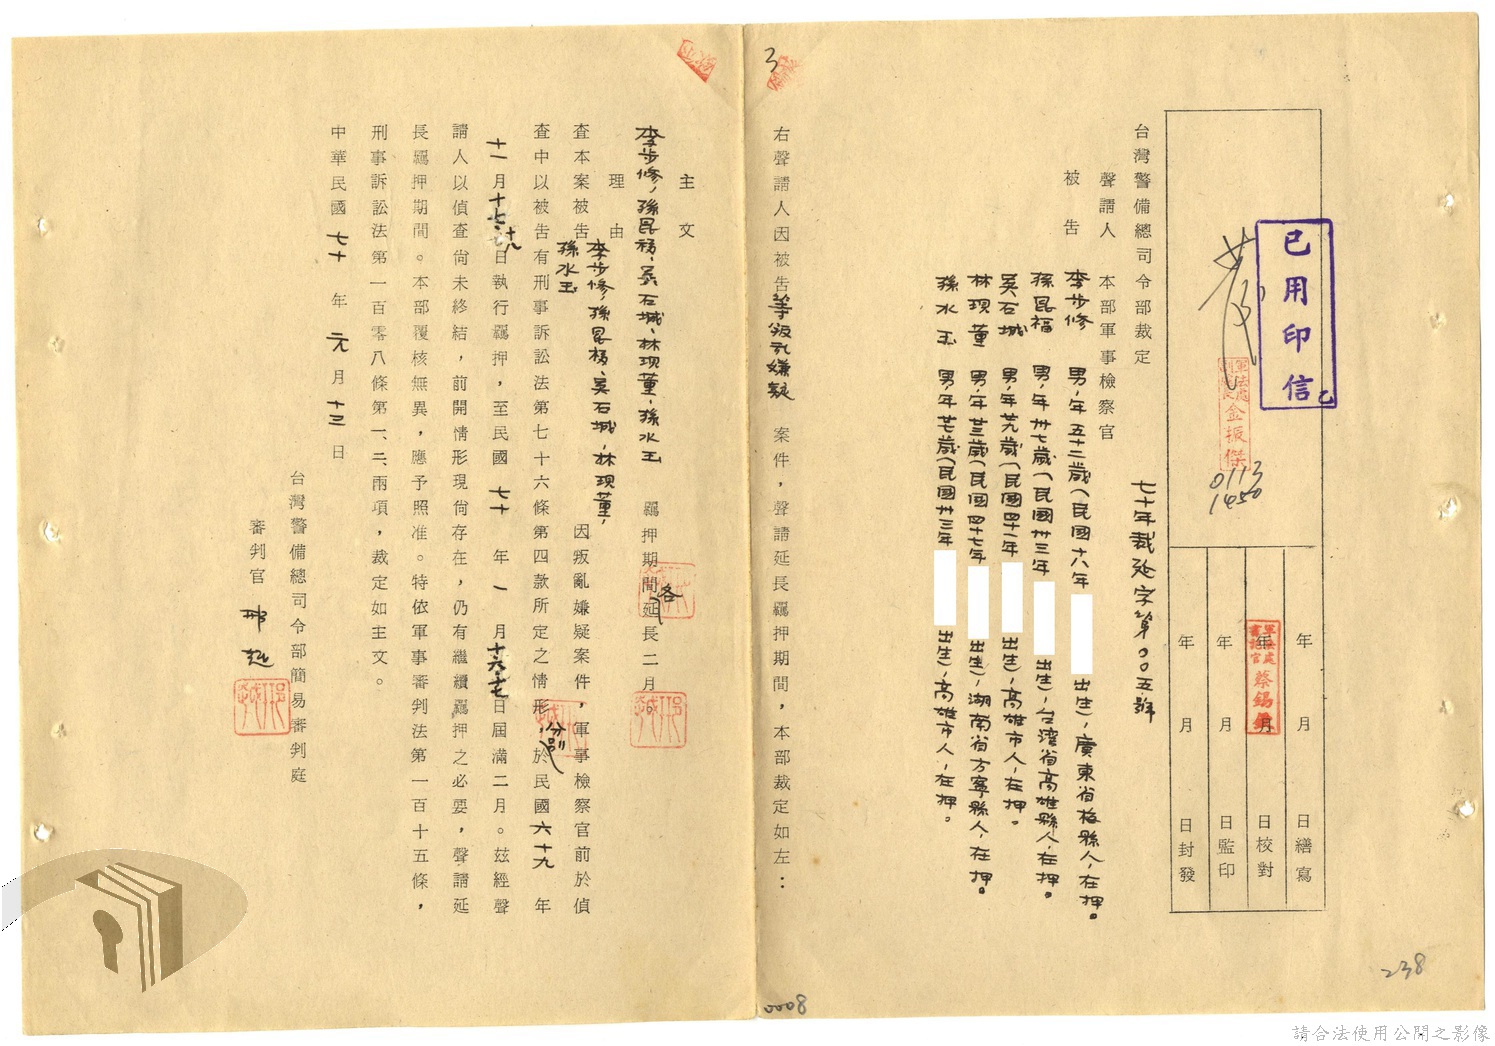 年 月 日繕寫
年 月 日校對
年 月 日監印
年 月 日封發
已用印信
軍法處
書記官
蔡錫
金振傑
0113
1450
台灣警備總司令部裁定
七十年裁延字第００五號
聲請人 本部軍事檢察官
被告 李步修 男，年五十二歲（民國十八年 出生），廣東省梅縣人，在押。
孫昆福 男，年卅七歲（民國卅三年 出生），台灣省高雄縣人，在押。
吳石城 男，年廿九歲（民國四十一年 出生），高雄市人，在押。
林現董 男，年廿三歲（民國四十七年 出生），湖南省方寧縣人，在押。
孫水玉 男，年廿七歲（民國卅三年 出生），高雄市人，在押。
右聲請人因被告等叛亂嫌疑 案件，聲請延長羈押期間，本部裁定如左：
3
主文
李步修，孫昆福、吳石城、林現董、孫水玉 羈押期間各延長二月。
理由
查本案被告李步修，孫昆福、吳石城、林現董，孫水玉 因叛亂嫌疑案件，軍事檢察官前於偵
查中以被告有刑事訴訟法第七十六條第四款所定之情形，分別於民國六十九年
十一月十七、十八日執行羈押，至民國七十年一月十六、十七日屆滿二月。玆經聲
請人以偵查尚未終結，前開情形現尚存在，仍有繼續羈押之必要，聲請延
長羈押期間。本部覆核無異，應予照准。特依軍事審判法第一百十五條，
刑事訴訟法第一百零八條第一、二、兩項，裁定如主文。
中華民國七十年元月十三日
台灣警備總司令部簡易審判庭
審判官 邢越
238
0008
請合法使用公開之影像